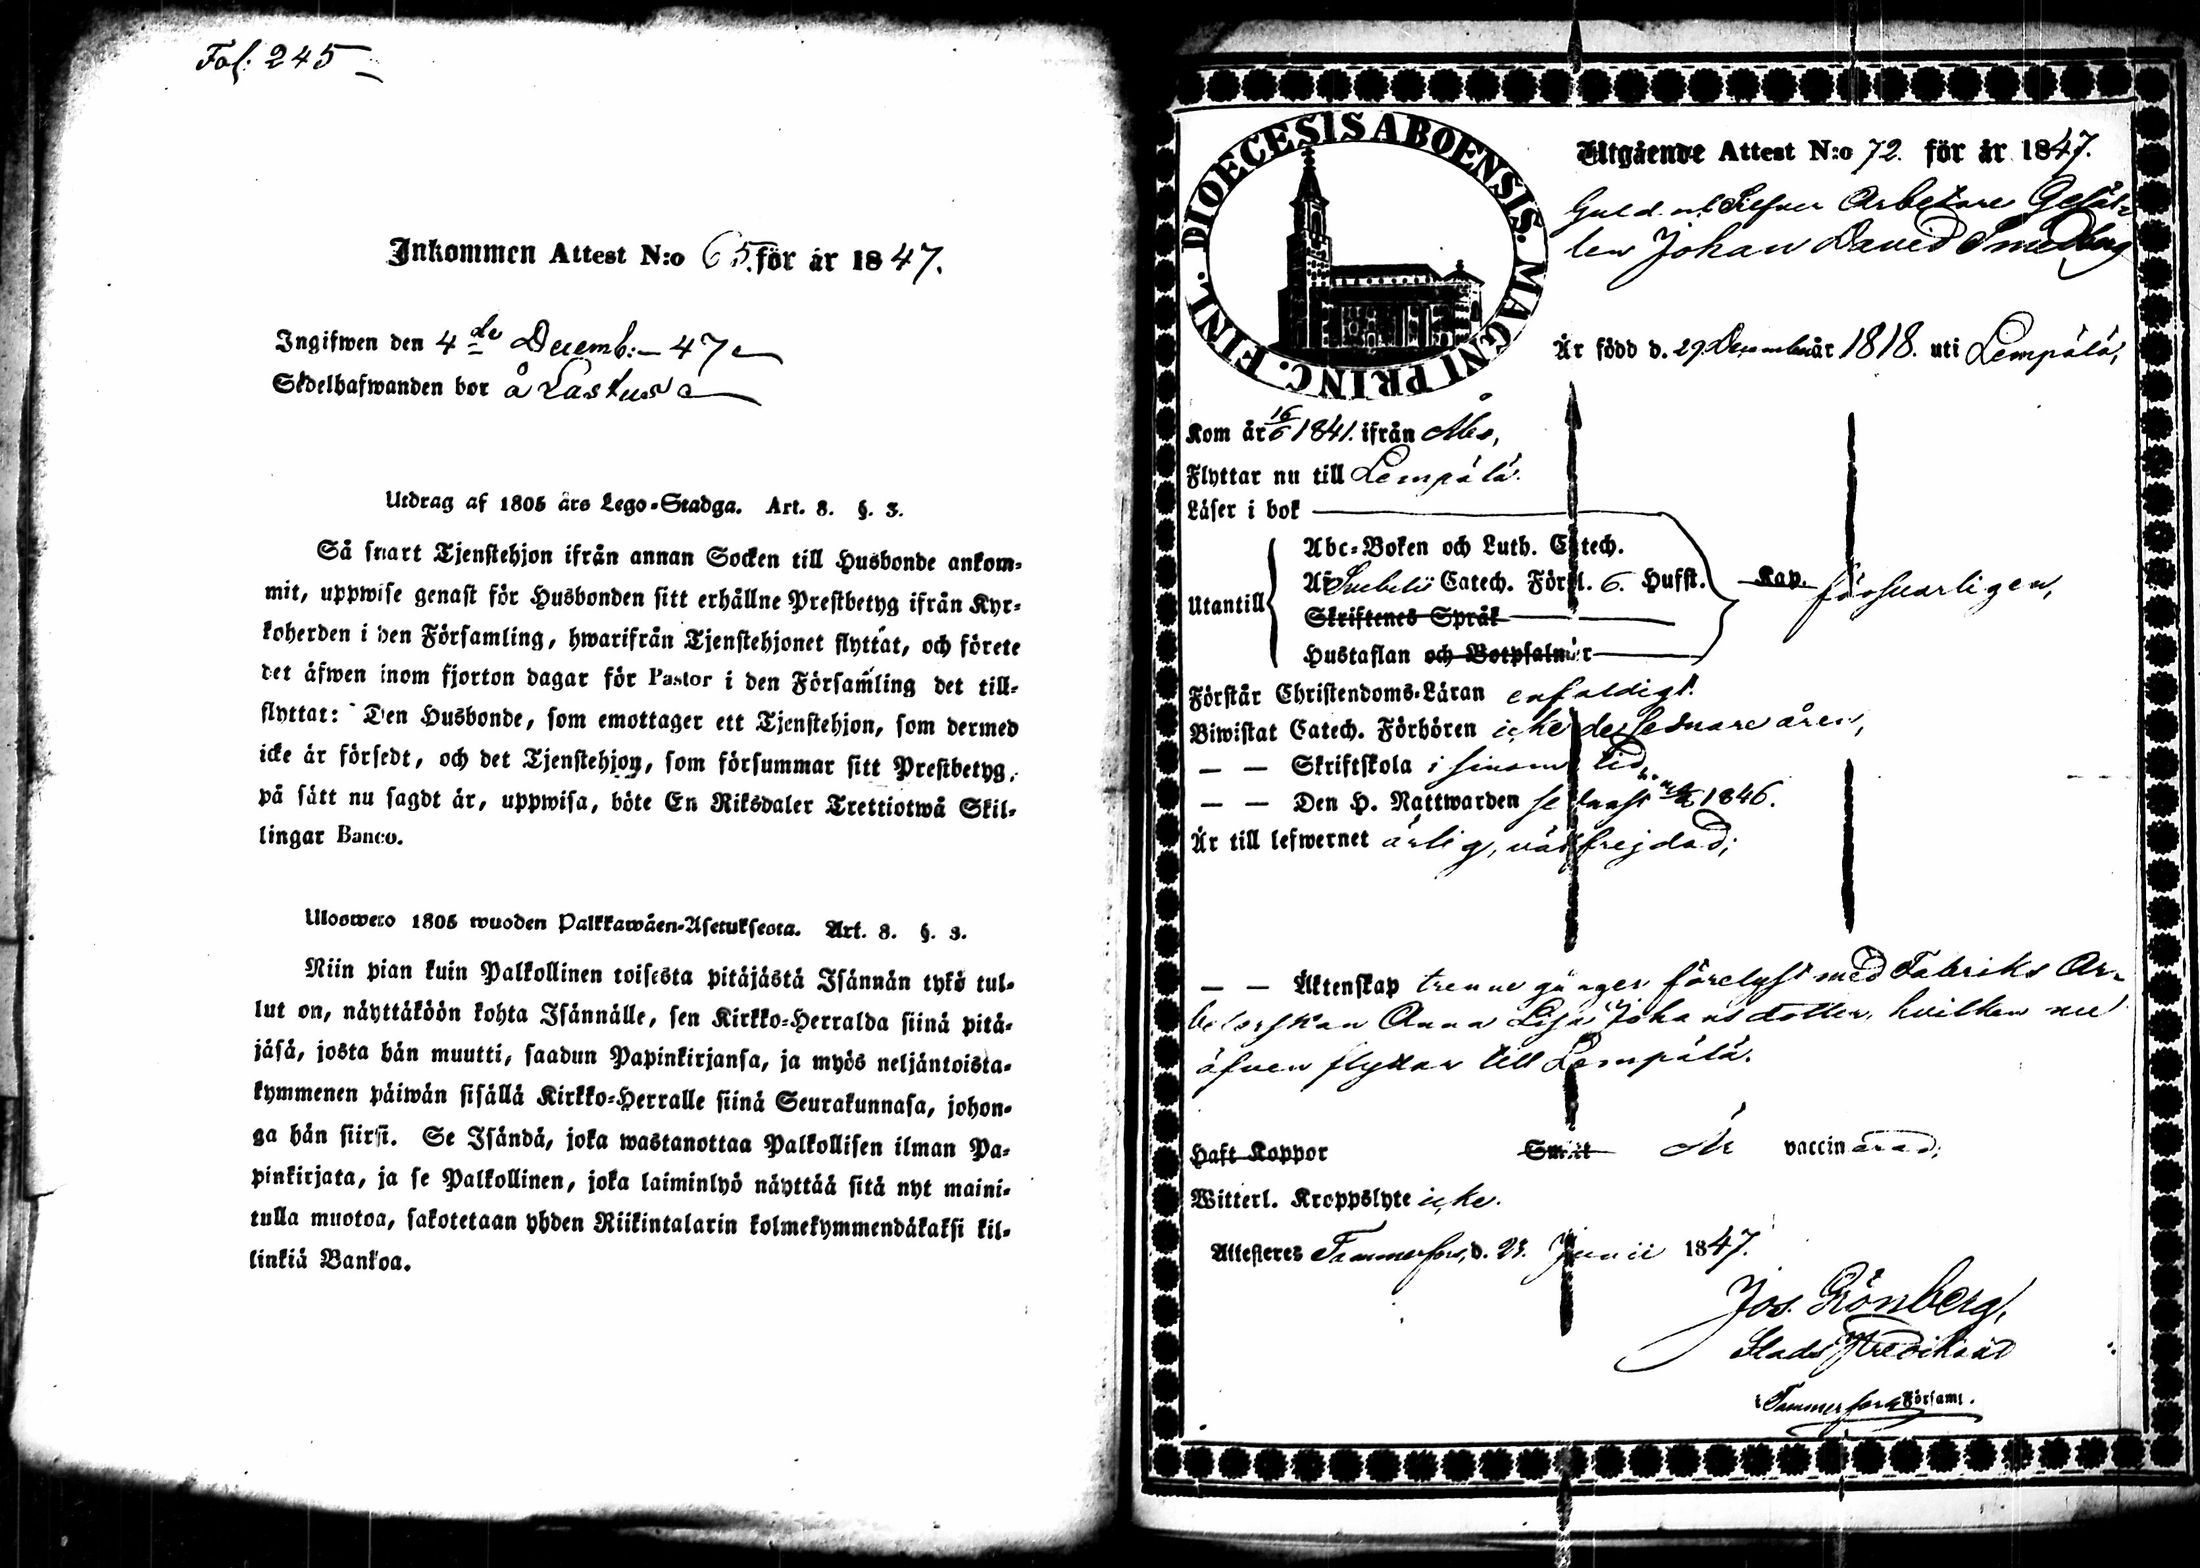 Fol: 245
Inkommen Attest N:o 65. för år 1847.
Ingifwen den 4 de Decemb:– 47
Sedelhafwanden bor å Lastus
Utdrag af 1805 års Lego-Stadga. Art. 8. §. 3.
Så snart Tjenstehjon ifrån annan Socken till Husbonde ankom-
mit, uppwise genast för Husbonden sitt erhållne Prestbetyg ifrån Kyr-
koherden i den Församling, hwarifrån Tjenstehjonet flyttat, och förete
det äfwen inom fjorton dagar för Pastor i den Församling det till-
flyttat: Den Husbonde, som emottager ett Tjenstehjon, som dermed
icke är försedt, och det Tjenstehjon, som försummar sitt Prestbetyg,
på sätt nu sagdt är, uppwisa, böte En Riksdaler Trettiotwå Skil-
lingar Banco.
Ulosweto 1805 wuoden Palkkawäen-Asetuksesta. Art. 8. §. 3.
Niin pian kuin Palkollinen toisesta pitäjästä Isännän tykö tul-
lut on, näyttäköön kohta Isännälle, sen Kirkko-Herralda siinä pitä-
jäsä, josta hän muutti, saadun Papinkirjansa, ja myös neljäntoista-
kymmenen päiwän sisällä Kirkko-Herralle siinä Seurakunnasa, johon-
ga hän siirsi. Se Isändä, joka wastanottaa Palkollisen ilman Pa-
pinkirjata, ja se Palkollinen, joka laiminlyö näyttää sitä nyt maini-
tulla muotoa, sakotetaan yhden Riikintalarin kolmekymmendäkaksi kil-
linkiä Bankoa.
DIOECESIS ABOENSIS. MAGNI PRINC. FINL.
Utgående Attest N:o 72. för år 1847.
Guld och Silfver Arbetare Gesäl-
len Johan David Smedberg
Är född d. 29 December år 1818. uti Lempälä,
Kom år 16/6 1841. ifrån Åbo,
Flyttar nu till Lempälä.
Läser i bok
Abc-Boken och Luth. Catech.
Utantill Svebelii Catech. Förkl. 6. Hufst. Kap. försvarligen,
Skriftenes Språk
Hustaflan och Botpsalmer
Förstår Christendoms-Läran enfaldigt.
Biwistat Catech. Förhören icke de senare åren,
— — Skriftskola i sinom tid,
— — Den H. Nattwarden senast 1846.
Är till lefwernet ärlig, välfrejdad;
— — Äktenskap trenne gånger förelyst med Fabriks Ar-
beterskan Anna Lisa Johansdotter, hvilken nu
äfven flyttar till Lempälä.
Haft Koppor Smitt Är vaccinerad;
Witterl. Kroppslyte icke.
Attesteres Tammerfors, d. 21. Junii 1847.
Jos. Grönberg,
Stads Predikant
i Tammerfors Församl.